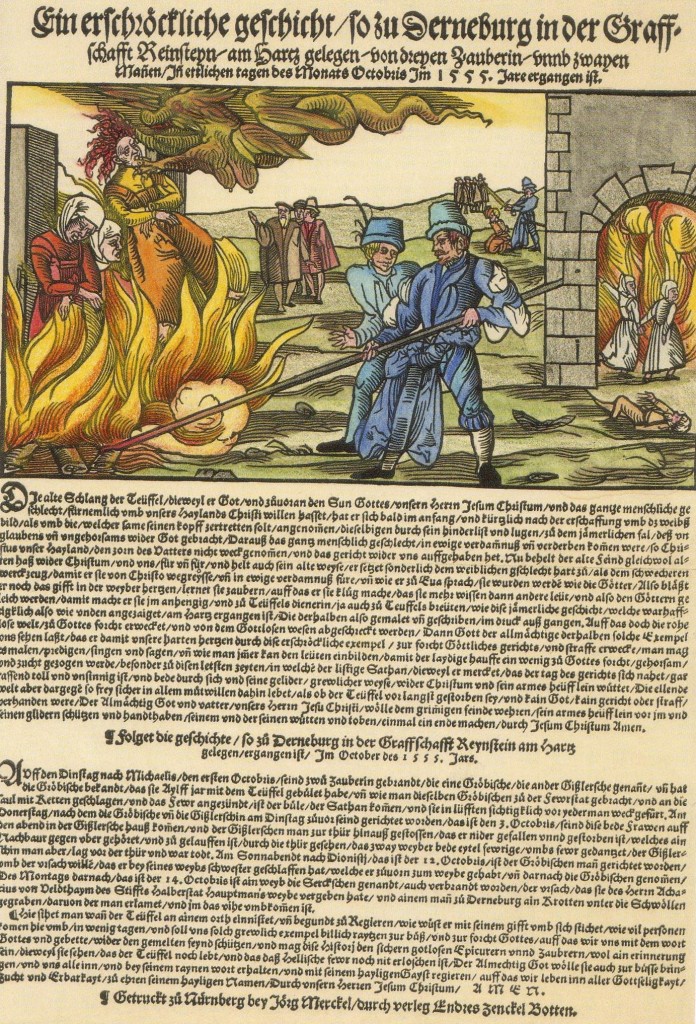 Ein erschröckliche geschicht/so zu Derneburg in der Graff-
schafft Reinsteyn/am Hartz gelegen/von dreyen Zauberin/vnnd zwayen
Mañen/Iñ etlichen tagen des Monats Octobris Im 1 5 5 5. Jare ergangen ist.
Die alte Schlang der Teüffel/dieweyl er Got/vnd zůuoran den Sun Gottes/vnsern Herrn Jesum Christum/vnd das gantze menschliche ge
schlecht/fürnemlich vmb vnsers Haylands Christi willen hasset/hat er sich bald im anfang/vnd kürtzlich nach der erschaffung vmb dz weibß
bild/als vmb die/welcher same seinen kopff zertretten solt/angenomen/dieselbigen durch sein hinderlist vnd lugen/zů dem jämerlichen fal/deß vn
glaubens vñ vngehorsams wider Got gebracht/Darauß das gantz menschlich geschlecht/in ewige verdamnuß vñ verderben komen were/so Chri
stus vnser Hayland/den zorn des Vatters nicht weck genomen/vnd das gericht wider vns auffgehaben het. Nu behelt der alte Feind gleichwol al-
ten haß wider Christum/vnd vns/für vñ für/vnd helt auch sein alte weyse/er setzt sonderlich dem weiblichen gschlecht hart zů/als dem schwecheren
werckzeug/damit er sie von Christo wegreysse/vñ in ewige verdamnuß füre/vñ wie er zů Eua sprach/sie wurden werde wie die Götter. Also bläst
er noch das gifft in der weyber hertzen/lernet sie zaubern/auff das er sie klůg mache/das sie mehr wissen dann andere leüt/vnd also den Göttern ge
leich werden/damit macher er sie jm anhengig/vnd zů Teüfels dienerin/ja auch zů Teuffels breüten/wie dise jämerliche geschicht/welche warhaff-
tigklich also wie vnden angezaigt/am Hartz ergangen ist/Die derhalben also gemalet vñ geschriben/im druck auß gangen. Auff das doch die rohe
lose welt/zů Gottes forcht erwecket/vnd von dem Gottlosen wesen abgeschreckt werden/Dann Gott der allmächtige derhalben solche Exempel
vns sehen laßt/das er damit vnsere harten hertzen durch dise erschröckliche exempel/zur forcht Götliches gerichts/vnd straffe erwecke/man mag
es malen/predigen/singen vnd sagen/vñ wie man jmer kan den leüten einbilden/damit der laydige hauffe ein wenig zů Gottes forcht/gehorsam/
vnd zucht gezogen werde/besonder zů disen letsten zeyten/in welche der listige Sathan/dieweyl er mercket/das der tag des gerichts sich nahet/gar
rassend toll vnd vnsinnig ist/vnd bede durch sich vnd seine gelider/grewlicher weyse/wider Christum vnd sein armes heüfflein wüttet. Die ellende
welt aber dargegē so frey sicher in allem můtwillen dahin lebet/als ob der Teüffel vor langst gestorben sey/vnd kain Got/kain gericht oder straff/
verhanden were. Der Almächtig Got vnd vatter/vnsers Herrn Jesu Christi/wölle dem grimigen feinde wehren/sein armes heüfflein vor jm vnd
seinen glidern schützen vnd handthaben/seinem vnd der seinen wütten vnd toben/einmal ein ende machen/durch Jesum Christum Amen.
¶ Folget die geschichte/so zů Derneburg in der Graffschafft Reynstein am Hartz
gelegen/ergangen ist/Im October des 1 5 5 5. Jars.
Auff den Dinstag nach Michaelis/den ersten Octobris/seind zwů Zauberin gebrandt/die eine Gröbische/die ander Gißlersche genañt/vñ hat
die Gröbische bekandt/das sie Aylff jar mit dem Teüffel gebůlet habe/vñ wie man dieselben Gröbischen zů der Fewrstat gebracht/vnd an die
saul mit Ketten geschlagen/vnd das Fewr angezündt/ist der bůle/der Sathan komen/vnd sie in lüfften sichtigklich vor yederman weckgefürt. Am
Donerstag/nach dem die Gröbische vñ die Gißlerschin am Dinstag zůuor seind gerichtet worden/das ist den 3. Octobris/seind dise bede Frawen auff
den abend in der Gißlersche hauß komen/vnd der Gißlerschen man zur thür hinauß gestossen/das er nider gefallen vnnd gestorben ist/welches ain
Nachbaur gegen vber gehöret/vnd zů gelauffen ist/durch die thür gesehen/das zway weyber bede eytel fewrige/vmbs fewr gedantzet/der Gißler-
schin man aber/lag vor der thür vnd war todt. Am Sonnabendt nach Dionisij/das ist der 12. Octobris/ist der Gröbischen man gerichtet worden/
vmb der vrsach willē/das er bey seines weybs schwester geschlaffen hat/welche er zůuorn zum weybe gehabt/vñ darnach die Gröbischen genomen/
Des Montags darnach/das ist der 14. Octobris ist ain weyb die Serckschen genandt/auch verbrandt worden/der vrsach/das sie des Herrn Acha-
cius von Veldthaym des Stiffts Halberstat Hauptmans weybe vergeben hate/vnd ainem mañ zů Derneburg ain Krotten vnter die Schwöllen
gegraben/daruon der man erlamet/vnd jm das vihe vmbkomen ist.
¶ Hie sihet man wañ der Teüffel an ainem orth einnistet/vñ begundt zů Regieren/wie wüst er mit seinem gifft vmb sich sticht/wie vil personen
komen hie vmb/in wenig tagen/vnd soll vns solch grewlich exempel billich raytzen zur bůß/vnd zur forcht Gottes/auff das wir vns mit dem wort
Gottes vnd gebette/wider den gemelten feynd schützen/vnd mag dise Histori den sichern gotlosen Epicurern vnnd Zaubrern/wol ain erinnerung
sein/dieweyl sie sehen/das der Teüffel noch lebt/vnd das daß Hellische fewr noch nit erloschen ist. Der Almechtig Got wölle sie auch zur bůsse brin-
gen/vnd vns alle inn/vnd bey seinem raynen wort erhalten/vnd mit seinem hayligen Gayst regieren/auff das wir leben inn aller Gottseligkayt/
zucht vnd Erbarkayt/zů ehren seinem hayligen Namen/Durch vnsern Herren Jesum Christum/ A M E N.
¶ Getruckt zů Nürnberg bey Jörg Merckel/durch verleg Endres Zenckel Botten.